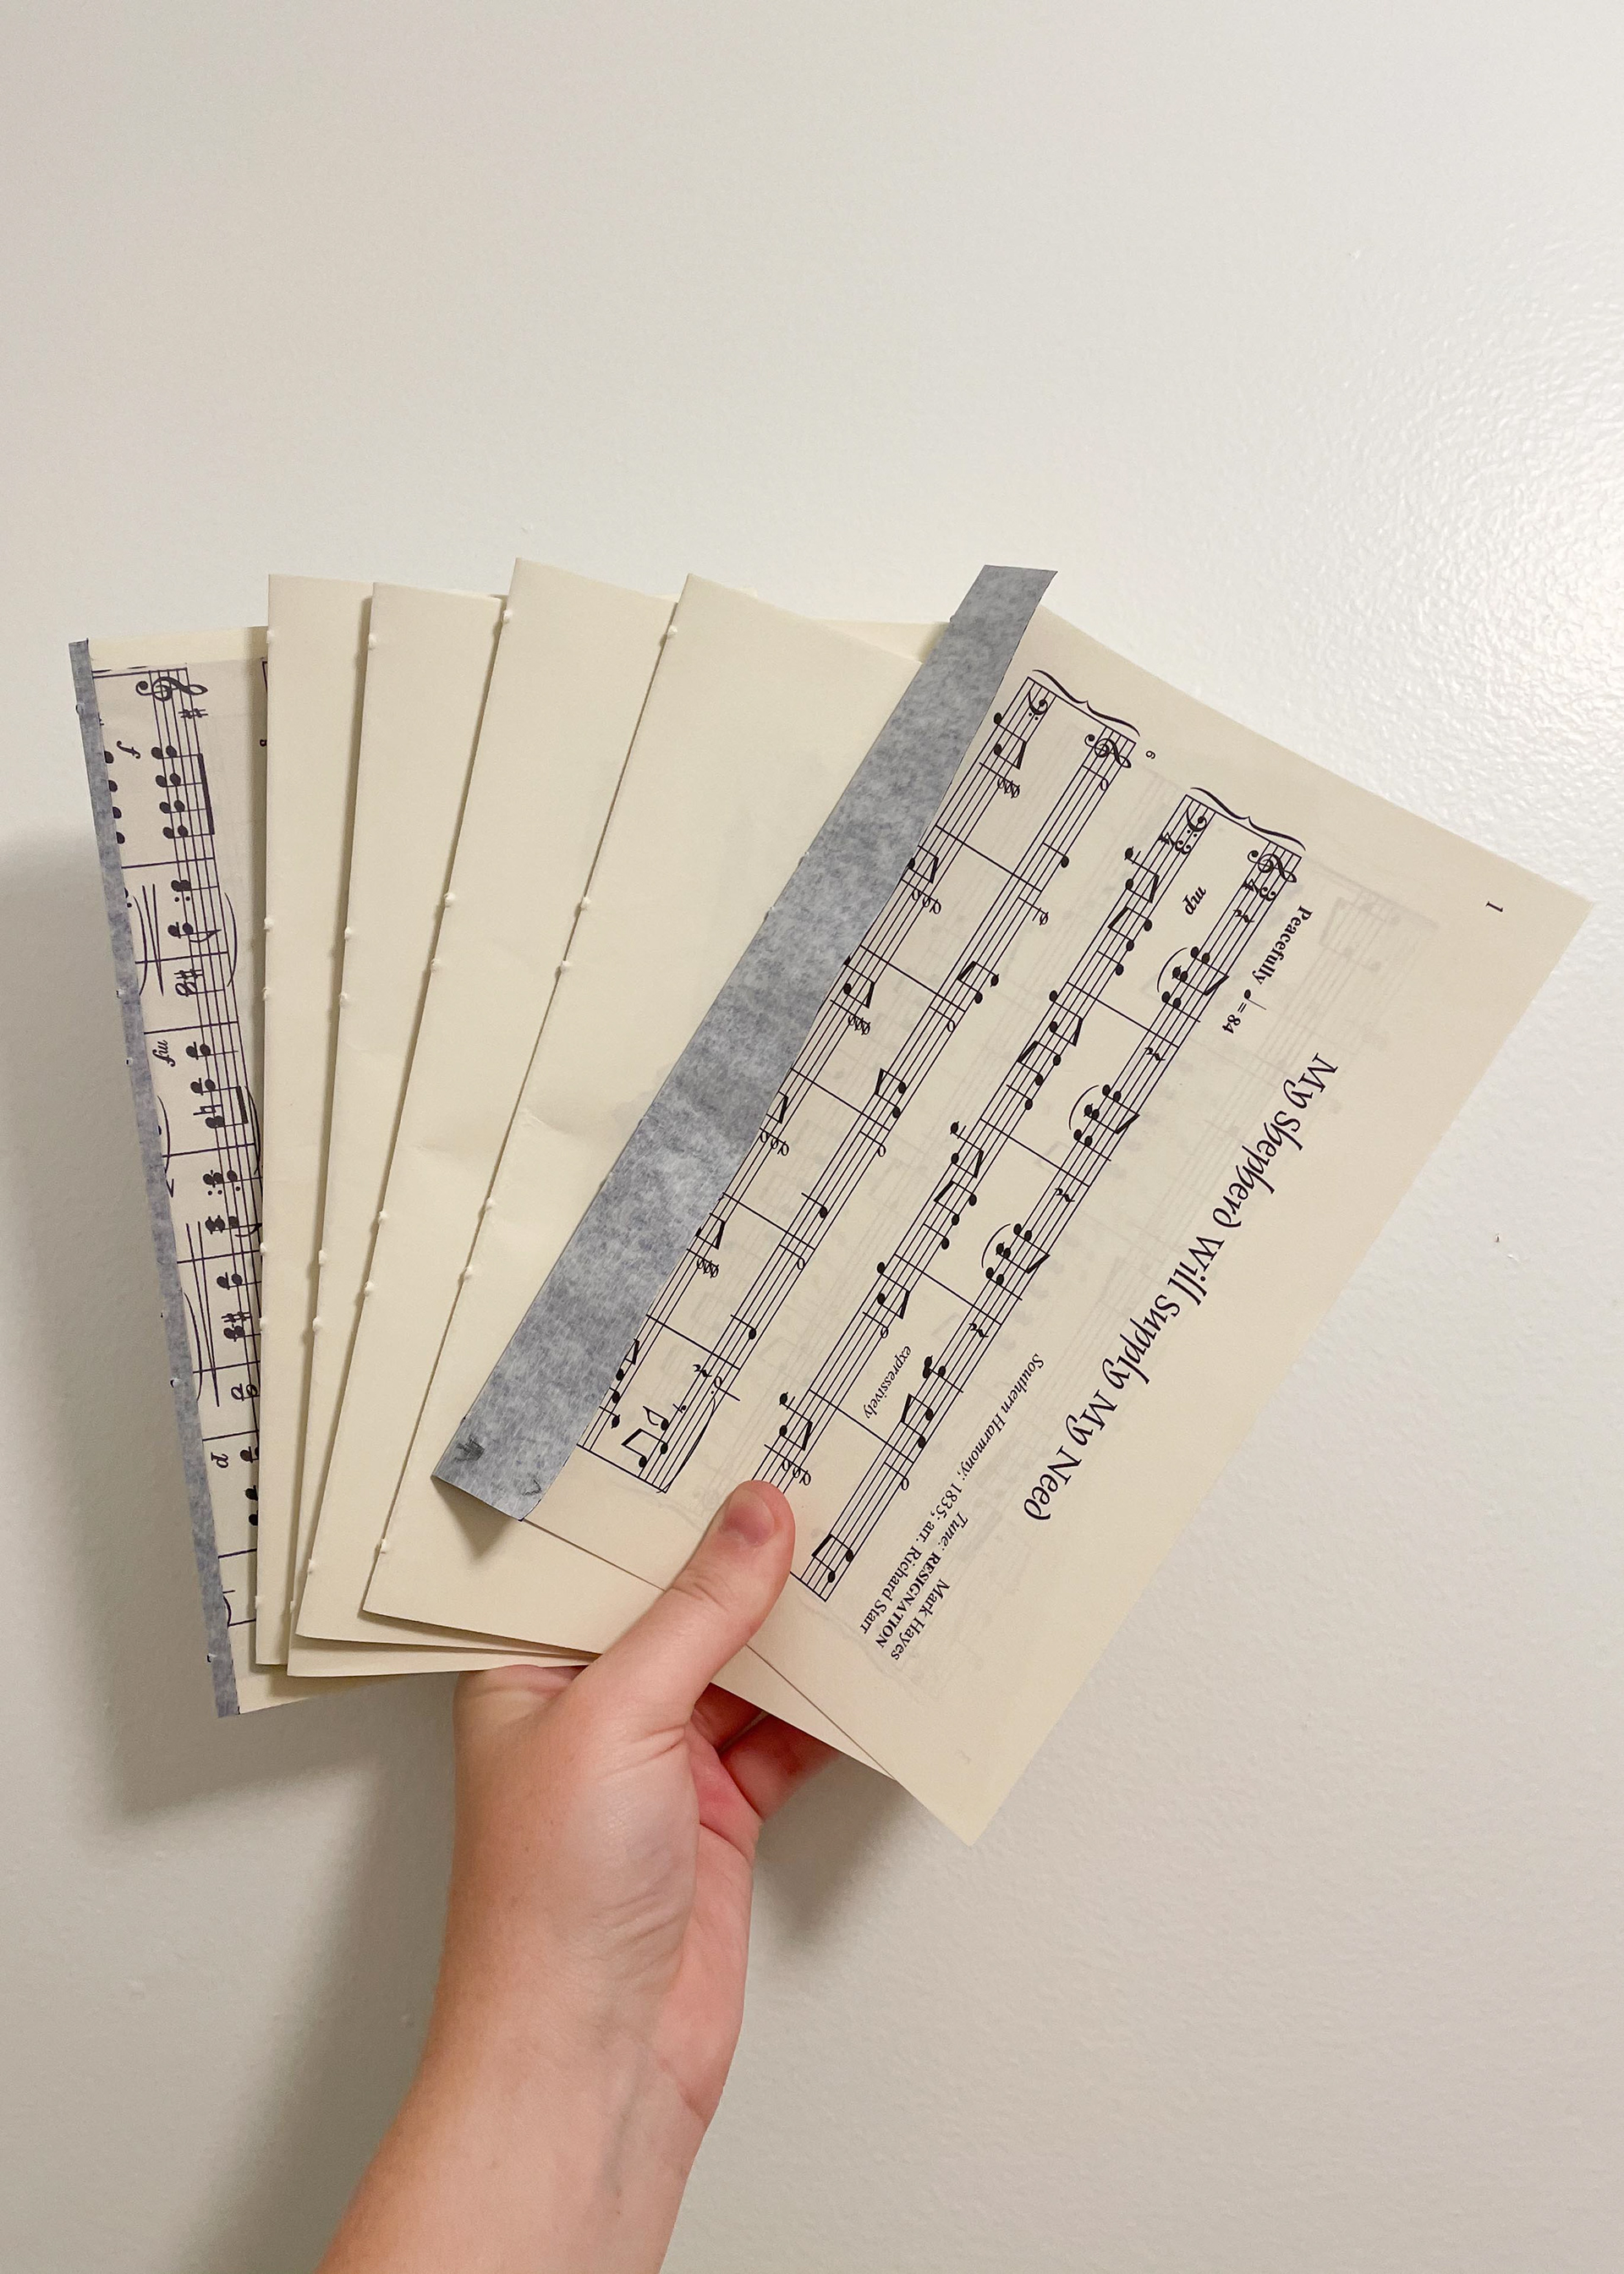 1
My Shepherd Will Supply My Need
Mark Hayes
Tune: RESIGNATION
Southern Harmony, 1835; arr. Richard Starr
Peacefully ♩ = 84
mp
expressively
6
f
mf
p
8